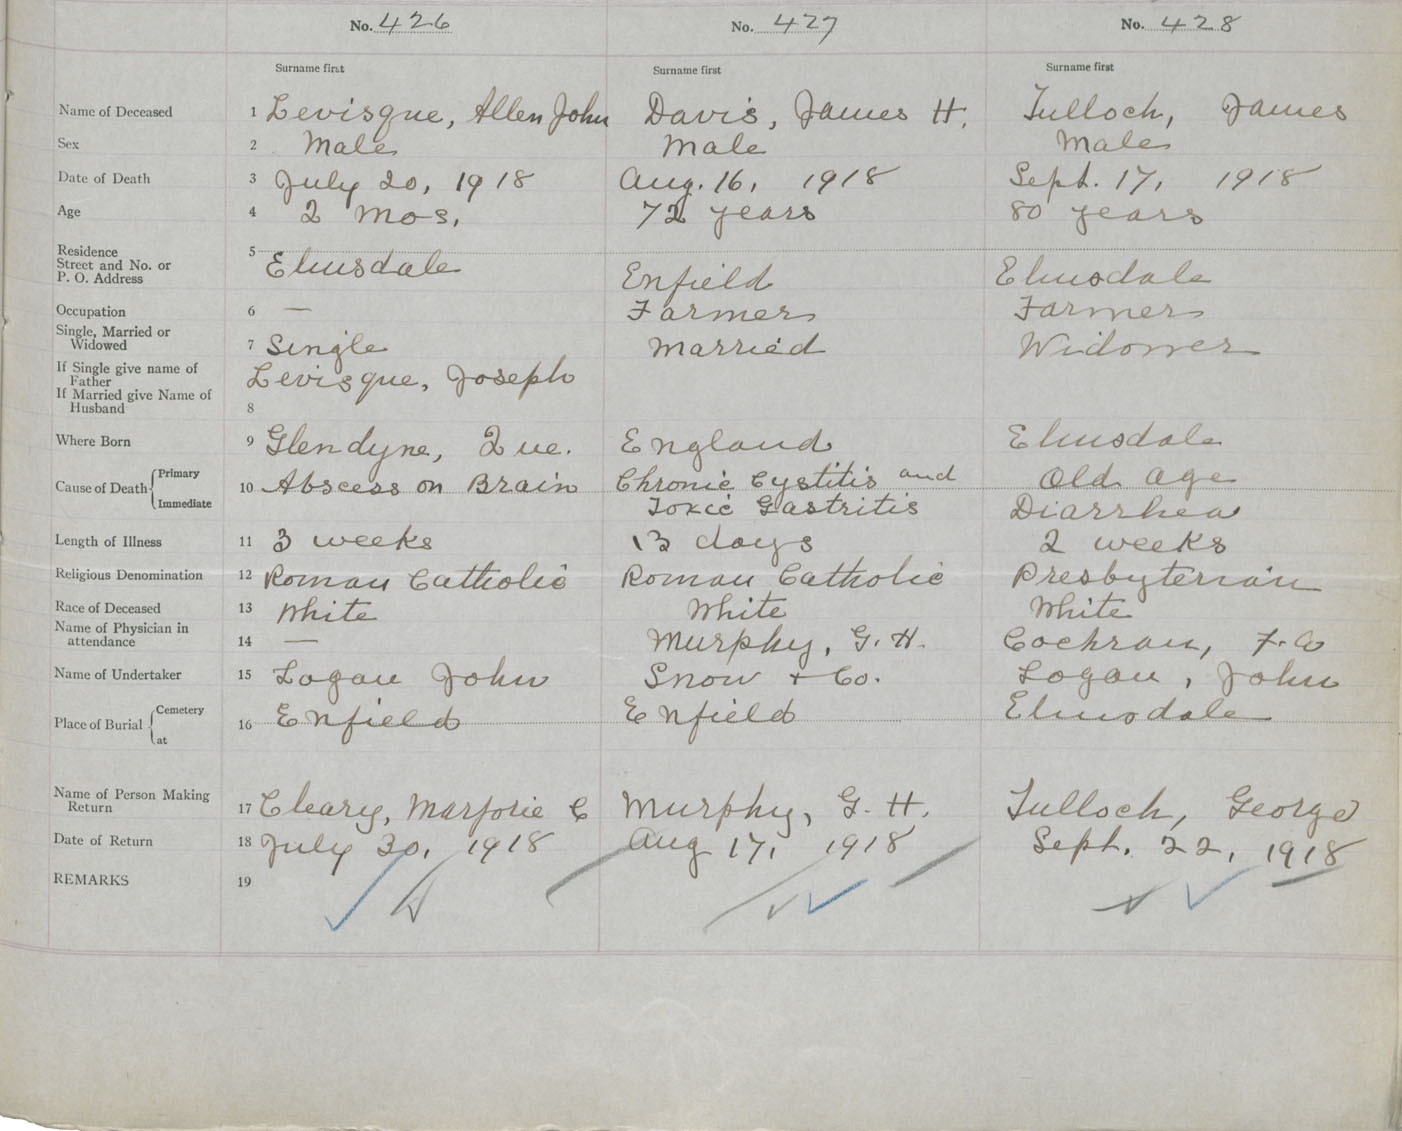 No. 426 No. 427 No. 428
Surname first Surname first Surname first
Name of Deceased 1 Levisque, Allen John Davis, James H. Tulloch, James
Sex 2 Male Male Male
Date of Death 3 July 20, 1918 Aug. 16, 1918 Sept. 17, 1918
Age 4 2 mos. 72 years 80 years
Residence 5
Street and No. or
P. O. Address Elmsdale Enfield Elmsdale
Occupation 6 — Farmer Farmer
Single, Married or
Widowed 7 Single Married Widower
If Single give name of
Father Levisque, Joseph
If Married give Name of
Husband 8
Where Born 9 Glendyne, Que. England Elmsdale
Primary
Cause of Death 10 Abscess on Brain Chronic Cystitis and Old Age
Immediate Toxic Gastritis Diarrhea
Length of Illness 11 3 weeks 13 days 2 weeks
Religious Denomination 12 Roman Catholic Roman Catholic Presbyterian
Race of Deceased 13 White White White
Name of Physician in
attendance 14 — Murphy, G. H. Cochran, F.
Name of Undertaker 15 Logan John Snow + Co. Logan, John
Cemetery
Place of Burial 16 Enfield Enfield Elmsdale
at
Name of Person Making
Return 17 Cleary, Marjorie C Murphy, G. H. Tulloch, George
Date of Return 18 July 30, 1918 Aug 17, 1918 Sept. 22, 1918
REMARKS 19